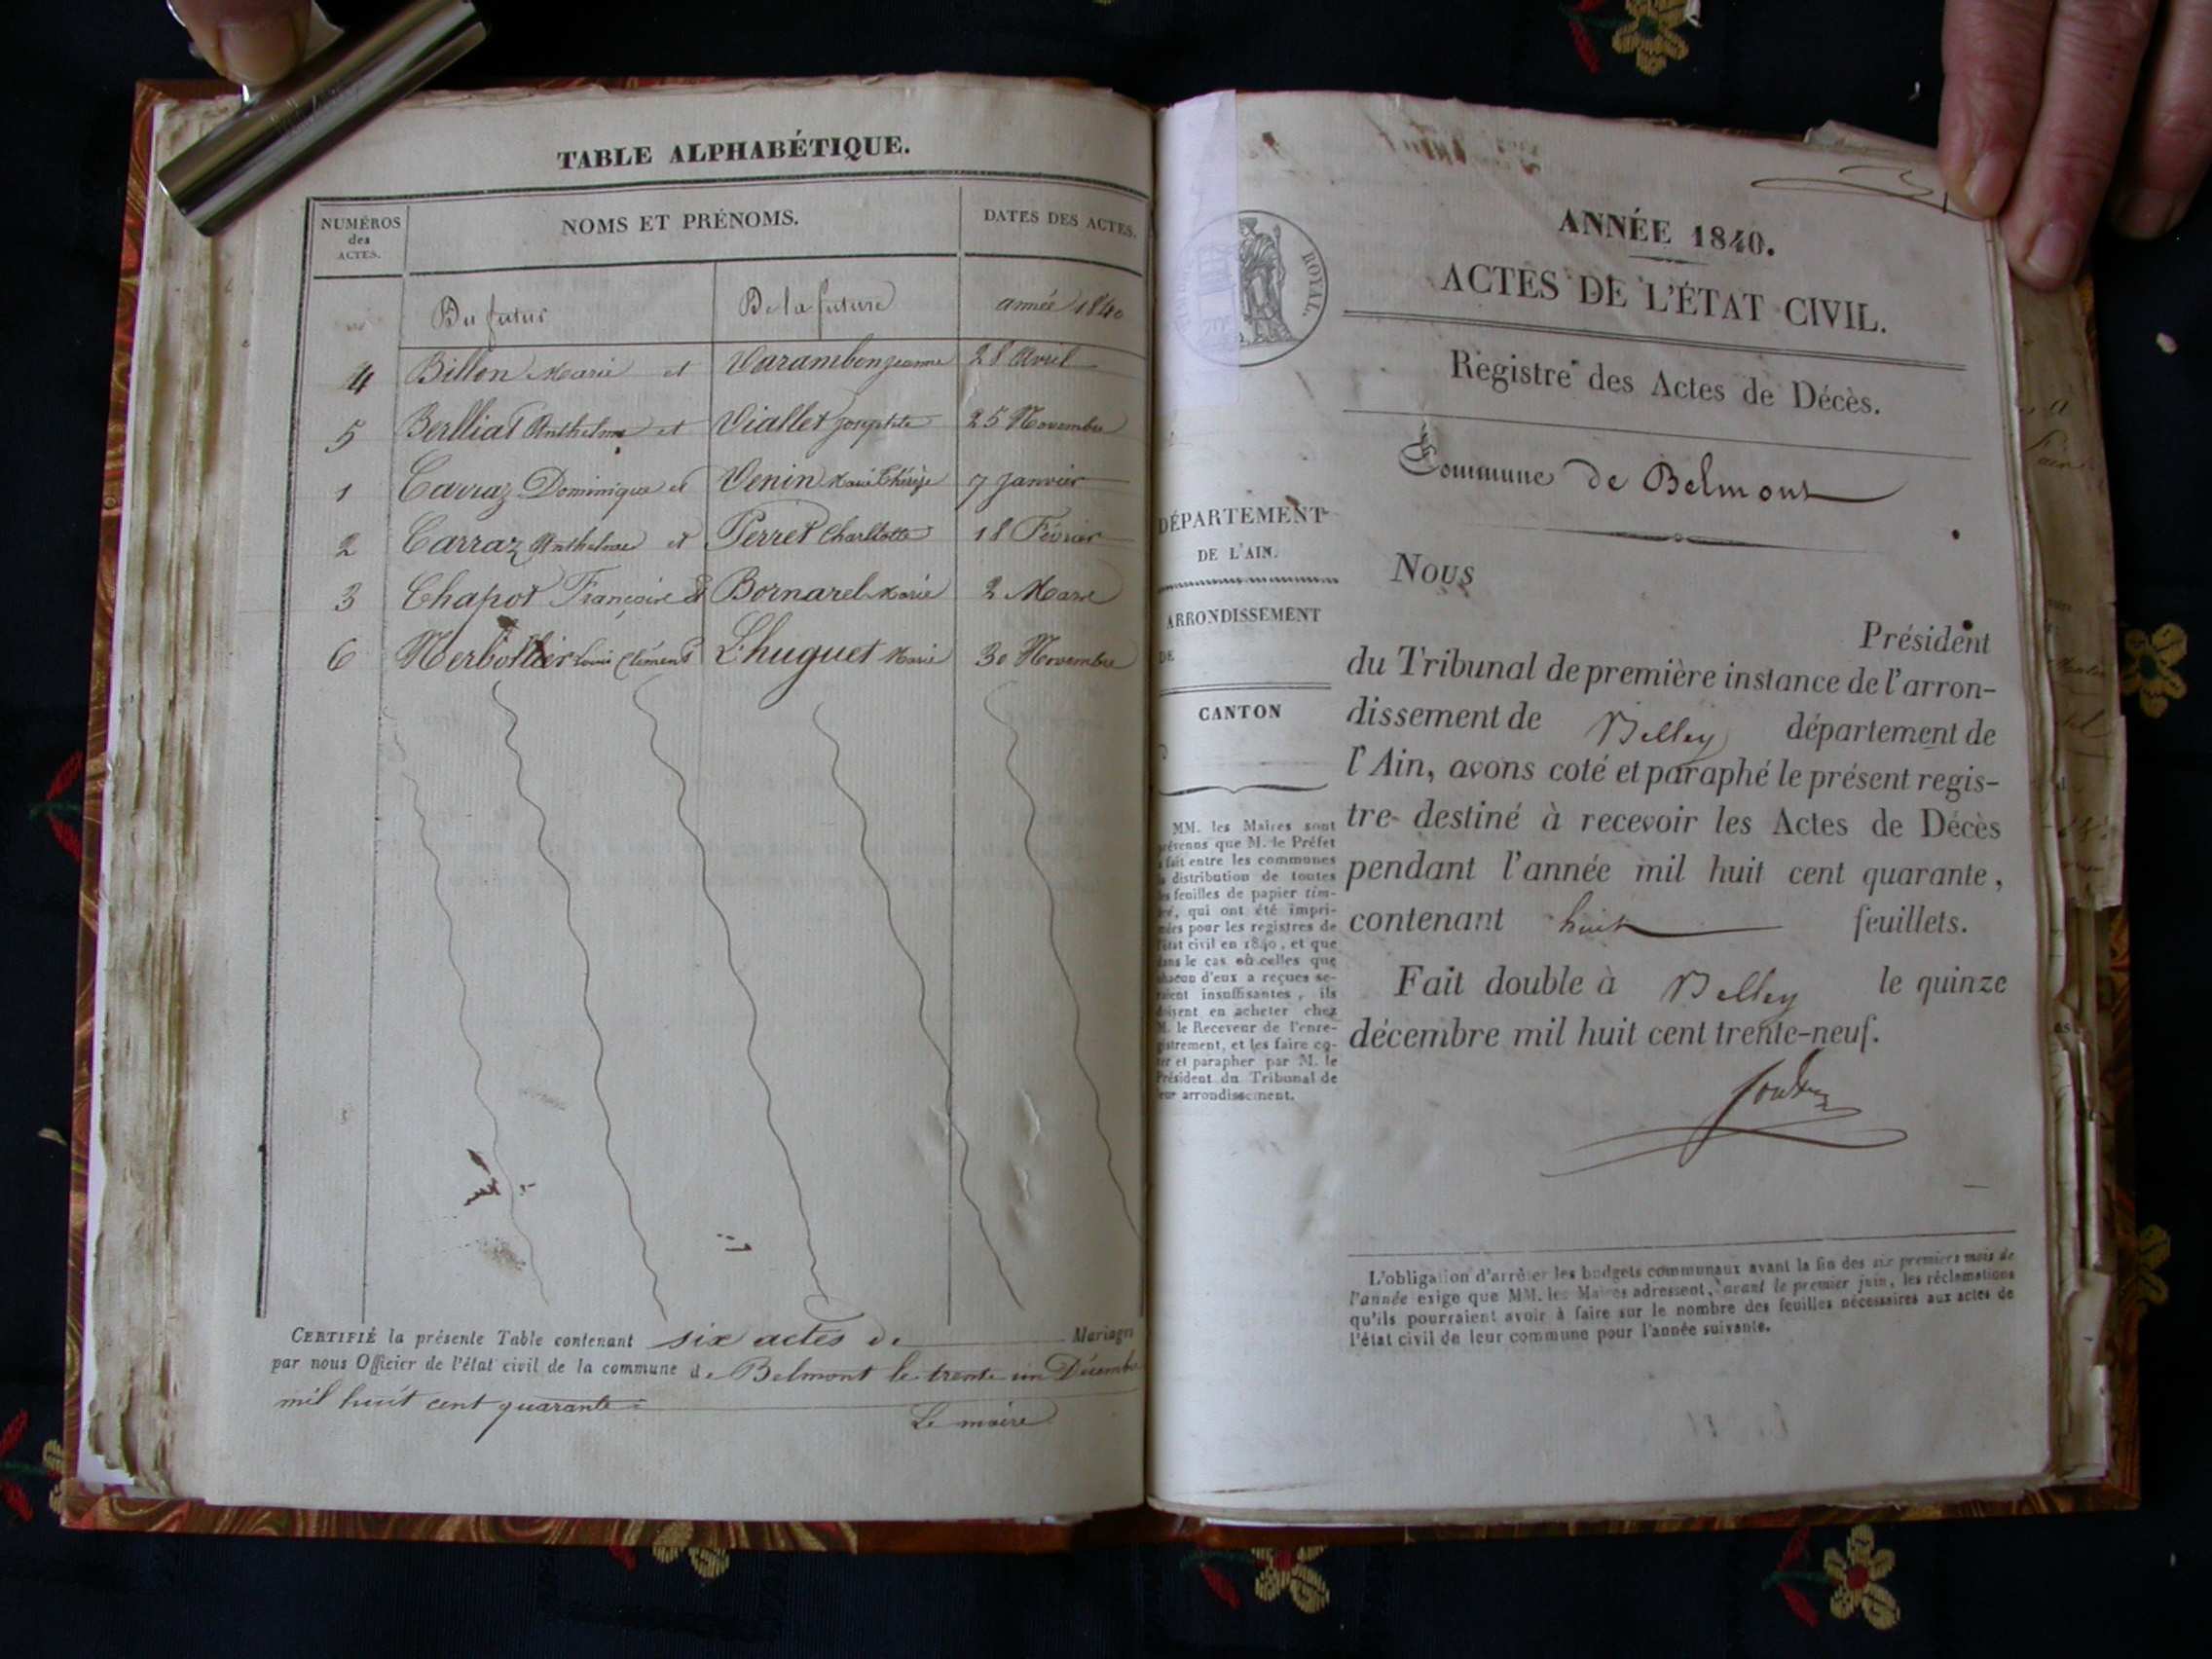 TABLE ALPHABÉTIQUE.
NUMÉROS des ACTES. NOMS ET PRÉNOMS. DATES DES ACTES.
Du futur De la future année 1840
4 Billon Marie et Varambon jeanne 28 Avril
5 Berlliat Anthelme et Viallet josephte 25 Novembre
1 Carraz Dominique et Venin Marie Thérèze 7 janvier
2 Carraz Anthelme et Perret Charllotte 18 Février
3 Chapot François et Bornarel Marie 2 Mars
6 Merbollier Louis Clément L'huguet Marie 30 Novembre
CERTIFIÉ la présente Table contenant six actes de Mariages
par nous Officier de l'état civil de la commune de Belmont le trente un Décembre
mil huit cent quarante
Le maire
ROYAL.
ANNÉE 1840.
ACTES DE L'ÉTAT CIVIL.
Registre des Actes de Décès.
Commune de Belmont
DÉPARTEMENT
DE L'AIN.
ARRONDISSEMENT
DE
CANTON
MM. les Maires sont
prévenus que M. le Préfet
a fait entre les communes
la distribution de toutes
les feuilles de papier tim-
bré, qui ont été impri-
mées pour les registres de
l'état civil en 1840, et que
dans le cas où celles que
chacun d'eux a reçues se-
raient insuffisantes, ils
doivent en acheter chez
M. le Receveur de l'enre-
gistrement, et les faire co-
ter et parapher par M. le
Président du Tribunal de
leur arrondissement.
Nous
Président
du Tribunal de première instance de l'arron-
dissement de Belley département de
l'Ain, avons coté et paraphé le présent regis-
tre destiné à recevoir les Actes de Décès
pendant l'année mil huit cent quarante,
contenant huit feuillets.
Fait double à Belley le quinze
décembre mil huit cent trente-neuf.
L'obligation d'arrêter les budgets communaux avant la fin des six premiers mois de
l'année exige que MM. les Maires adressent, avant le premier juin, les réclamations
qu'ils pourraient avoir à faire sur le nombre des feuilles nécessaires aux actes de
l'état civil de leur commune pour l'année suivante.